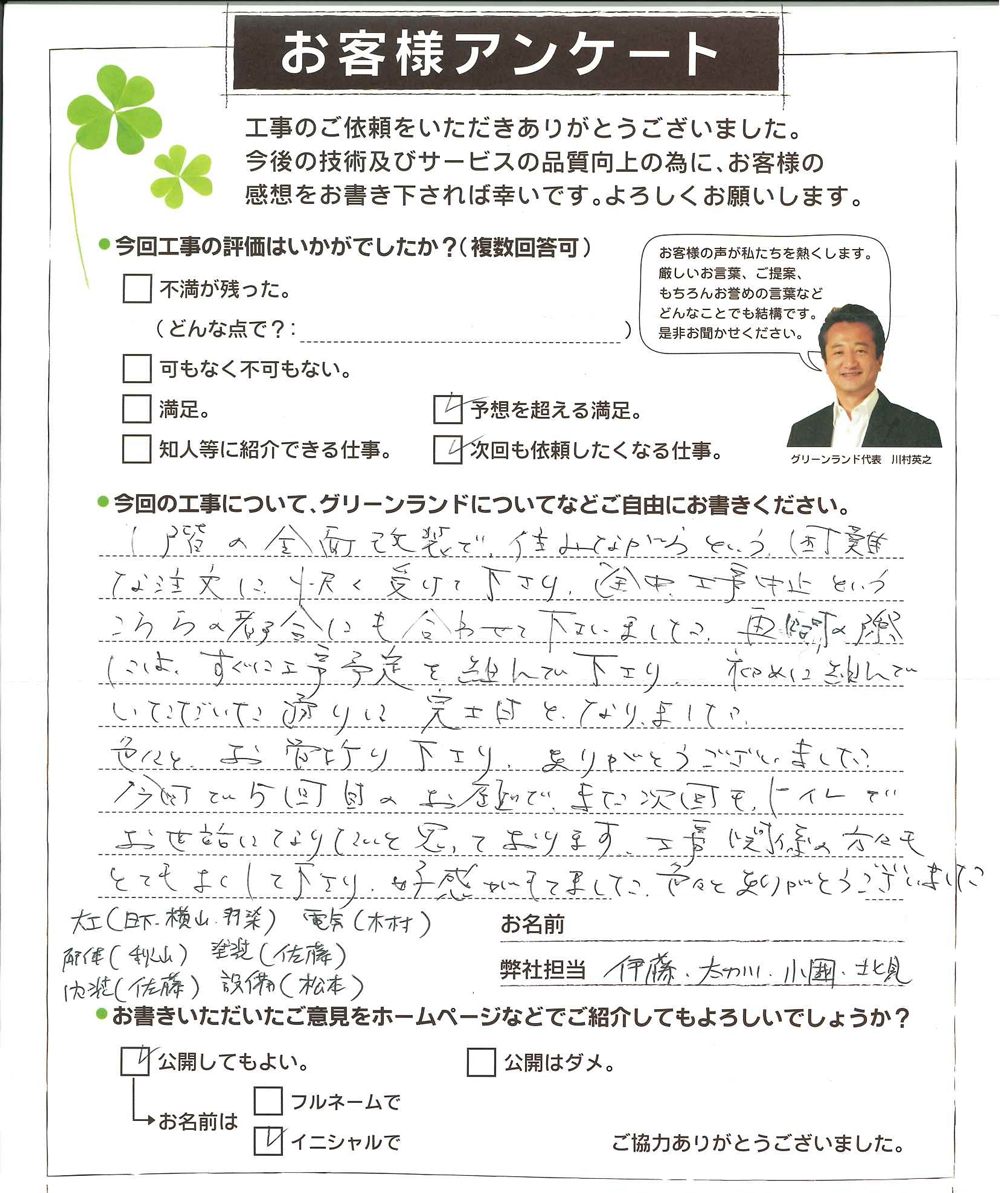 お客様アンケート
工事のご依頼をいただきありがとうございました。
今後の技術及びサービスの品質向上の為に、お客様の
感想をお書き下されば幸いです。よろしくお願いします。
●今回工事の評価はいかがでしたか?(複数回答可)
お客様の声が私たちを熱くします。
厳しいお言葉、ご提案、
もちろんお誉めの言葉など
どんなことでも結構です。
是非お聞かせください。
不満が残った。
(どんな点で?: )
可もなく不可もない。
満足。 予想を超える満足。
知人等に紹介できる仕事。 次回も依頼したくなる仕事。
グリーンランド代表 川村英之
●今回の工事について、グリーンランドについてなどご自由にお書きください。
1階の全面改装で、住みながらという困難
な注文に、快く受けて下さり、途中、工事中止という
こちらの都合にも合わせて下さいました。再開の際
には、すぐに工事予定を組んで下さり、初めに組んで
いただいた通りに完工日となりました。
色々と、お骨折り下さり、ありがとうございました。
今回で5回目のお願いで、また次回も、トイレで
お世話になりたいと思っております。工事関係の方々も
とてもよくして下さり、好感がもてました。色々とありがとうございました
大工(日下、横山、羽染) 電気(木村)
解体(秋山) 塗装(佐藤)
内装(佐藤) 設備(松本)
お名前
弊社担当 伊藤、太刀川、小圃、北見
●お書きいただいたご意見をホームページなどでご紹介してもよろしいでしょうか?
公開してもよい。 公開はダメ。
お名前は
フルネームで
イニシャルで
ご協力ありがとうございました。